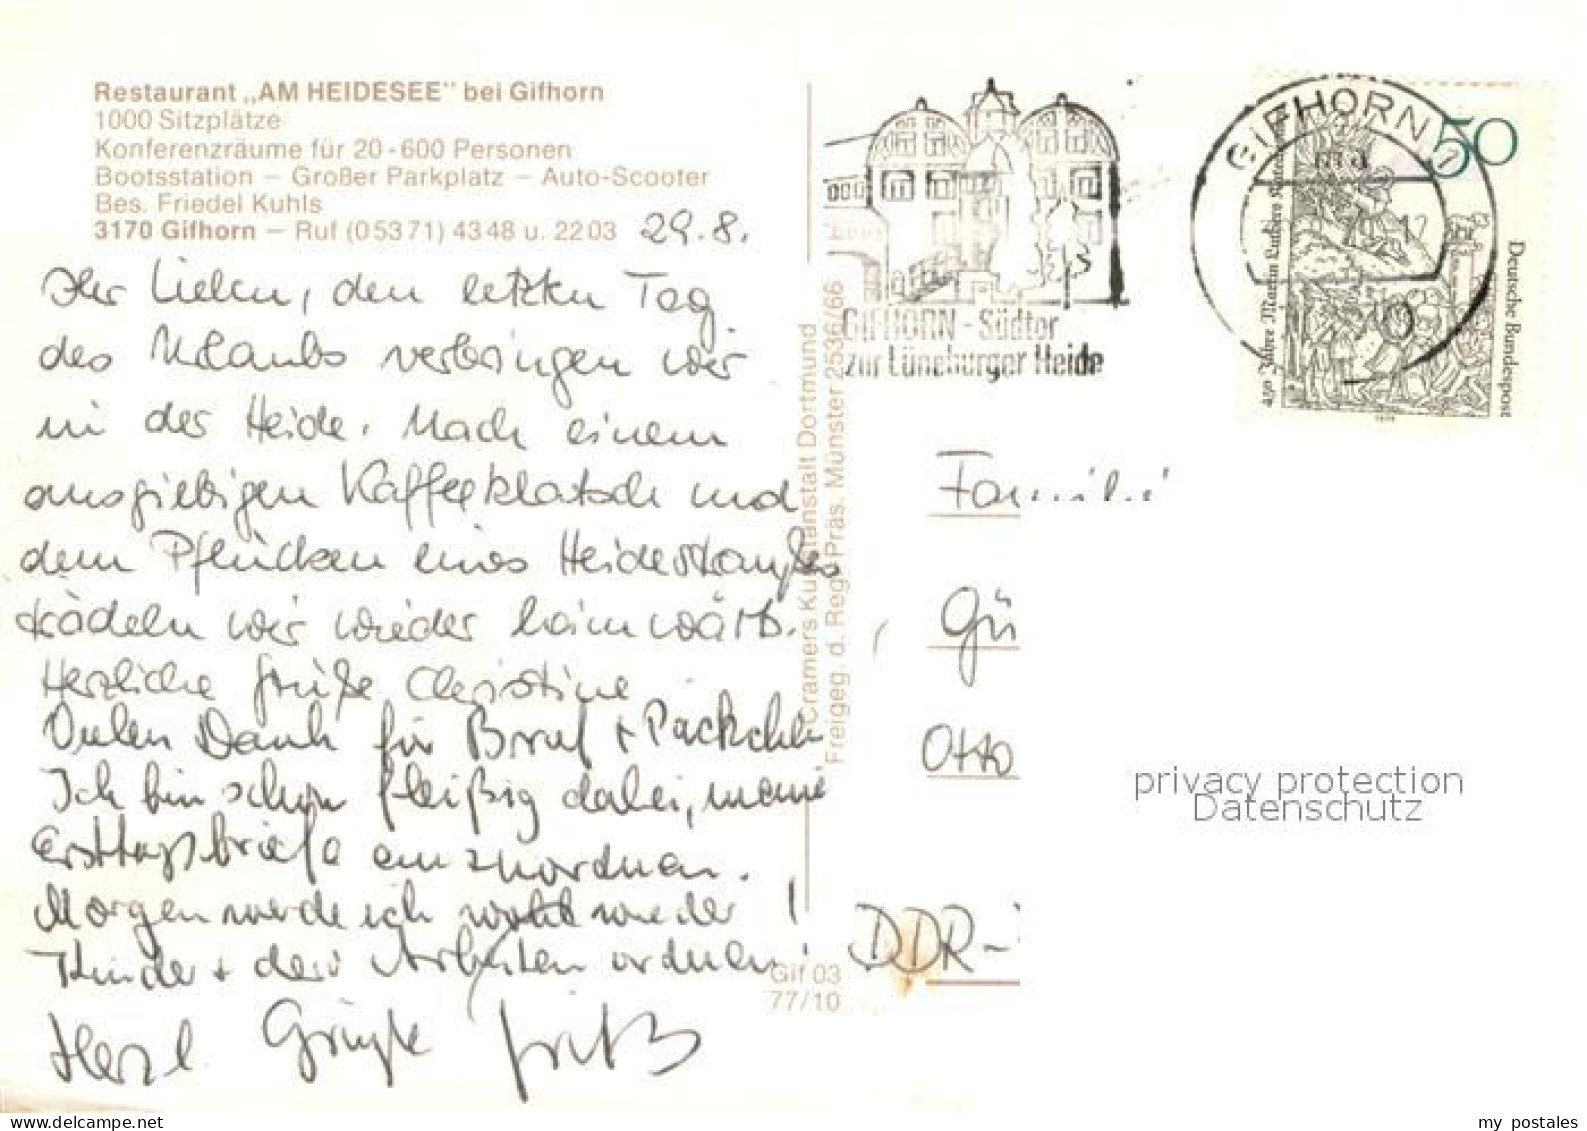 Restaurant „AM HEIDESEE" bei Gifhorn
1000 Sitzplätze
Konferenzräume für 20-600 Personen
Bootsstation – Großer Parkplatz – Auto-Scooter
Bes. Friedel Kuhls
3170 Gifhorn – Ruf (05371) 4348 u. 2203
29.8.
Ihr Lieben, den letzten Tag
des Urlaubs verbringen wir
in der Heide. Nach einem
ausgiebigen Kaffeeklatsch und
dem Pflücken eines Heidestraußes
radeln wir wieder heimwärts.
Herzliche Grüße Christine
Vielen Dank für Brief + Päckchen
Ich bin schon fleißig dabei, meine
Ersttagsbriefe einzuordnen.
Morgen werde ich wohl wieder
Kinder + Arbeiten ordnen!
Herzl. Grüße
Cramers Kunstanstalt Dortmund
Freigeg. d. Reg. Präs. Münster 2536/66
Gif 03
77/10
GIFHORN - Südtor
zur Lüneburger Heide
GIFHORN 1
50
Deutsche Bundespost
450 Jahre Martin Luthers
Familie
Gü
Otto
DDR-
privacy protection
Datenschutz
my postales